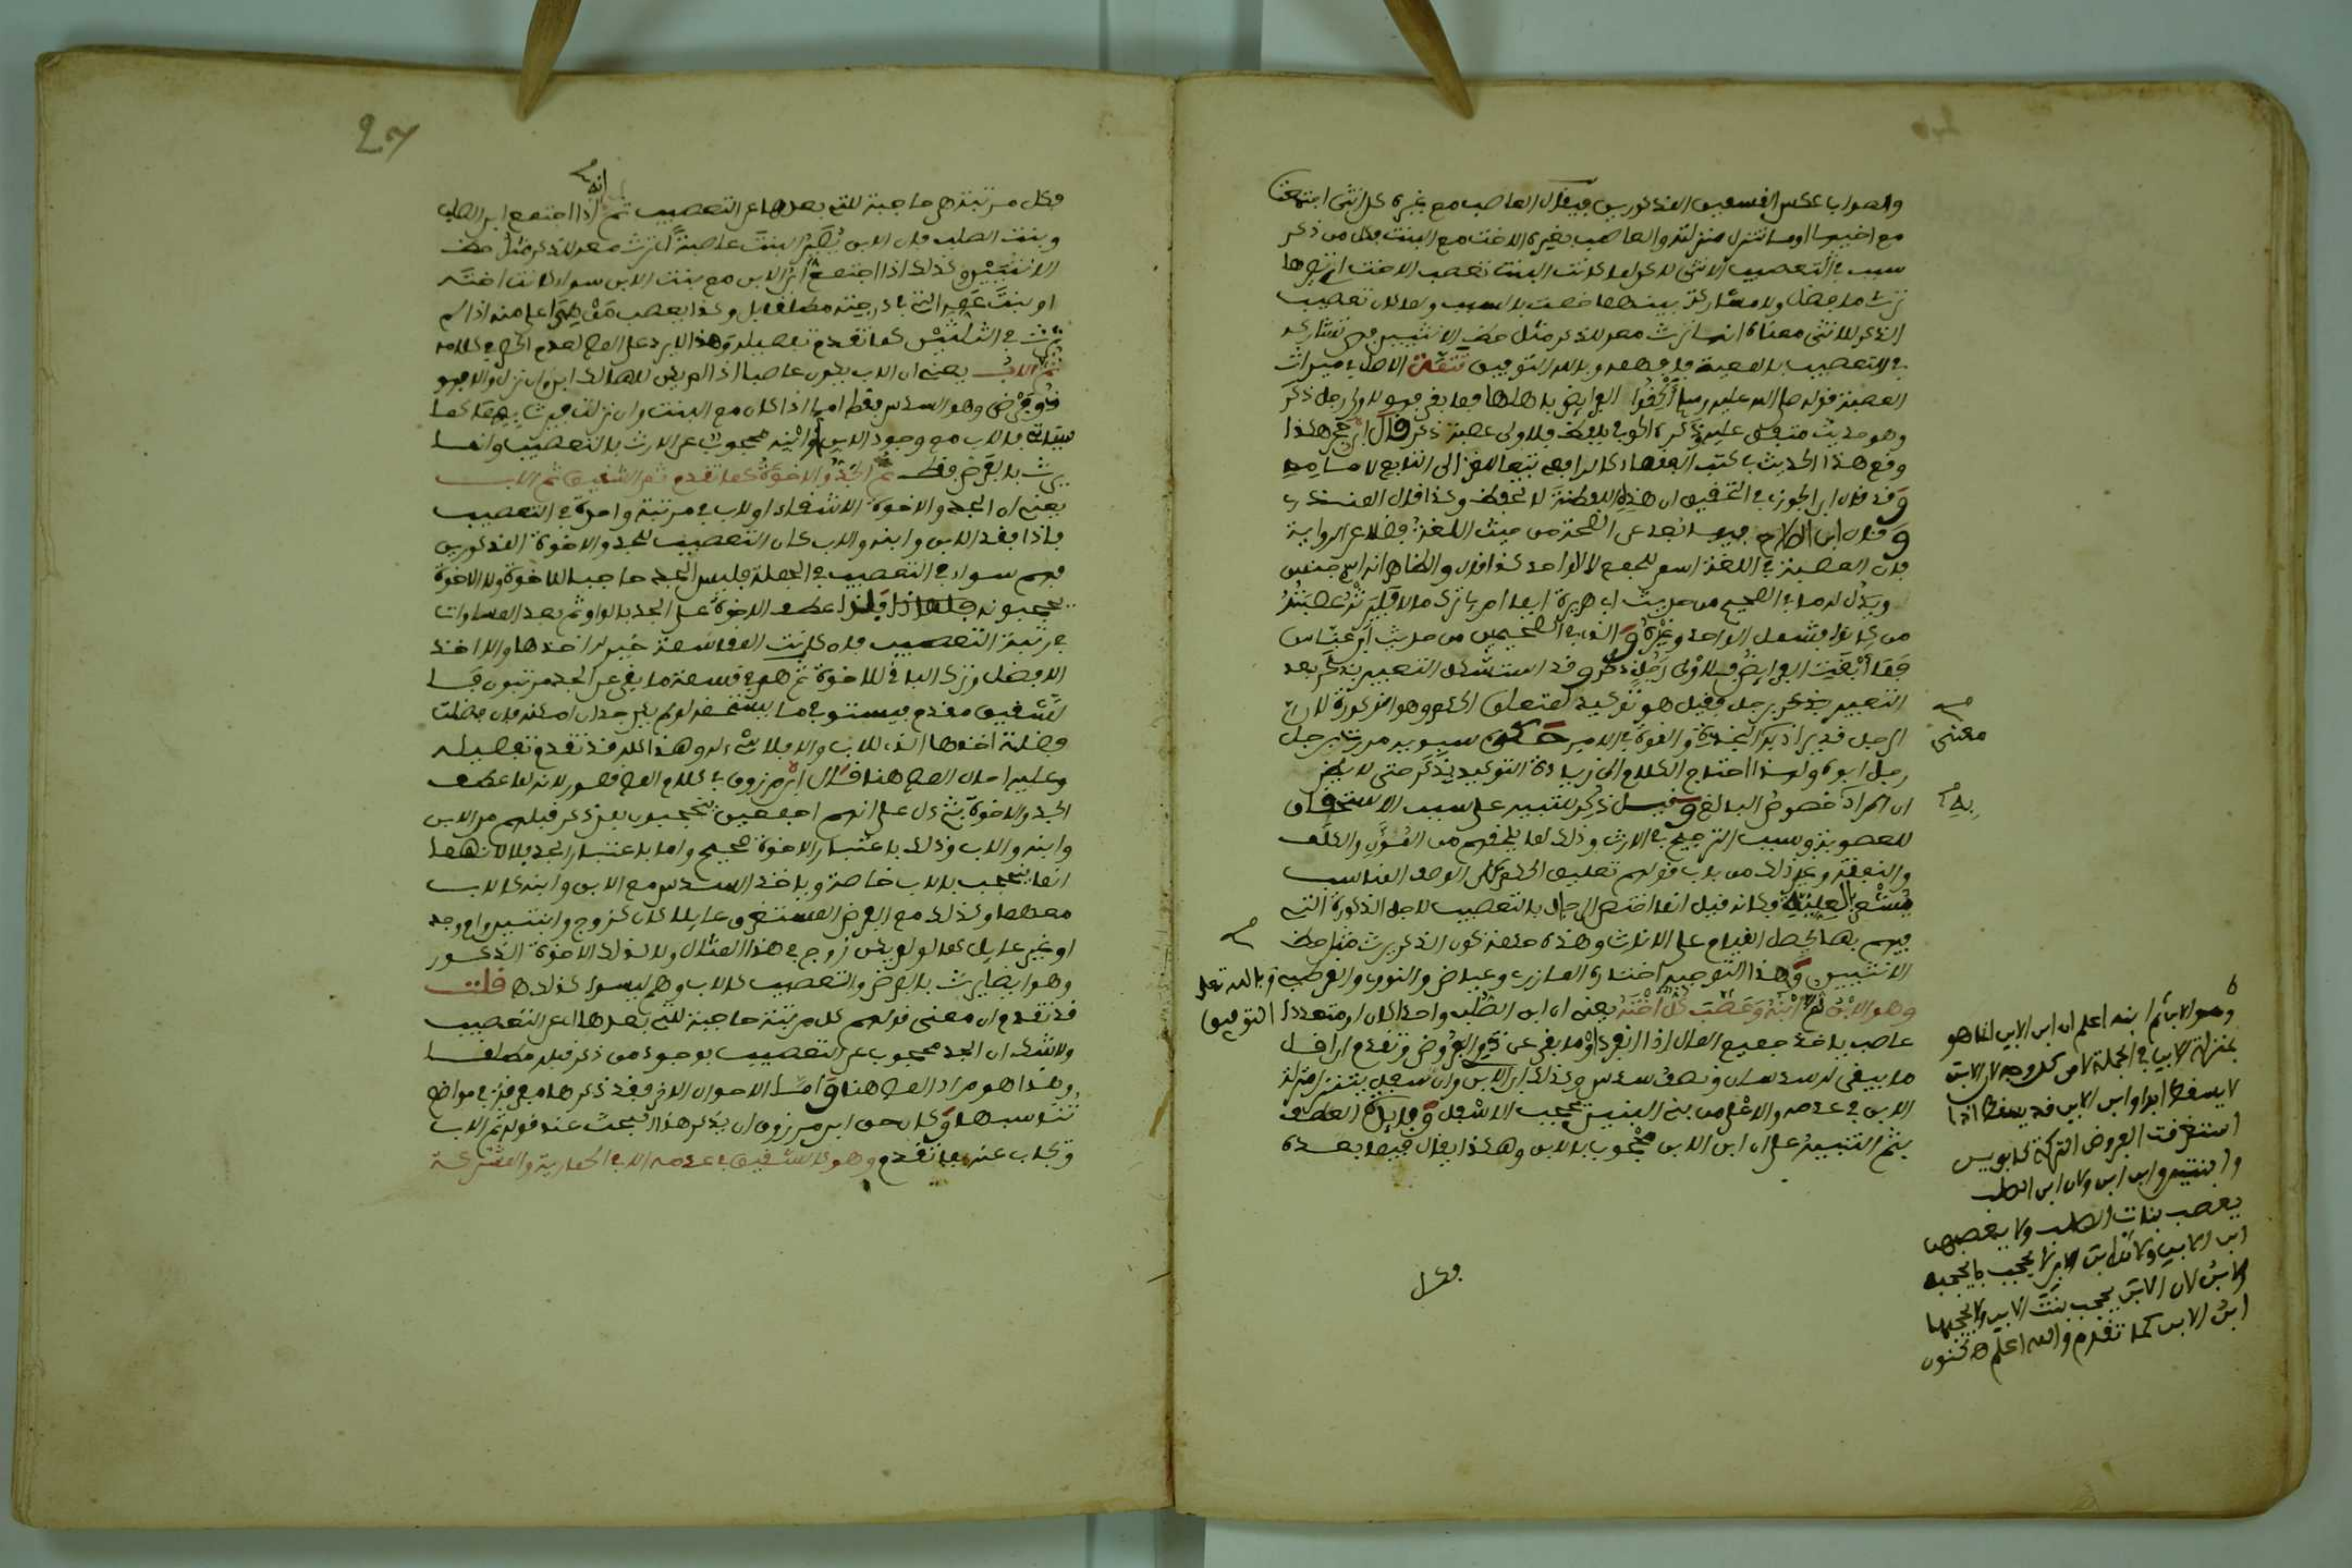 والصواب عكس القسمين المذكورين فيقال العاصب مع غيره كل انثى اجتمعت
مع اختها او ما تنزل منزلته والعاصب بغيره الاخت مع البنت فكل من ذكر
سبب في التعصيب الانثى لذكر لما كانت البنت تعصب الاخت اي تصيرها
ترث ما فضل ولا مشاركة بينهما خصت بالسبب ولما كان تعصيب
الذكر للانثى معناه انها ترث معه للذكر مثل حظ الانثيين فهي تشاركه
في التعصيب بالمعية فافهمه وبالله التوفيق تتمة الاصل في ميراث
العصبة قوله صلى الله عليه وسلم الحقوا الفرايض باهلها فما بقي فهو لاولى رجل ذكر
وهو حديث متفق عليه ذكره الحوفي بلفظ فلاولى عصبة ذكر قال ابن حجر هكذا
وقع هذا الحديث في كتب الفقهاء كالرافعي تبعا للغزالي الى
وقد قال ابن الجوزي في التحقيق ان هذه اللفظة لا تحفظ وكذا قال المنذري
وقال ابن الصلاح فيها بعد عن الصحة من حيث اللغة فضلا عن الرواية
فان العصبة في اللغة اسم للجمع لا للواحد كذا قال والظاهر انه اسم جنس
ويدل له ما في الصحيح من حديث ابي هريرة ايما امرئ ترك مالا فليرثه عصبته
من كانوا فيشمل الواحد وغيره والذي في الصحيحين من حديث ابن عباس
فما ابقت الفرايض فلاولى رجل ذكر وقد استشكل التعبير بذكر بعد
التعبير برجل فقيل هو توكيد لمتعلق الحكم وهو الذكورة لان
الرجل قد يراد به النجدة والقوة في الامر حكى سيبويه مررت برجل
رجل ابوه ولهذا احتاج الكلام الى زيادة التوكيد بذكر حتى لا يظن
ان المراد خصوص البالغ وقيل ذكر للتنبيه على سبب الاستحقاق
للعصوبة وسبب الترجيح في الارث وذلك لما يلحقهم من المؤن والكلف
والنفقة وغير ذلك من باب قولهم تعليق الحكم على الوصف المناسب
مشعر بالعلية فكانه قيل انما اختص الرجال بالتعصيب لاجل الذكورة التي
فيهم بها يحصل القيام على الاناث وهذه حكمة كون الذكر يرث مثل حظ
الانثيين وهذا التوجيه اختاره المازري وعياض والنووي والقرطبي وبالله تعلى
التوفيق
وهو الابن ثم ابنه وعصب كل اخته يعني ان ابن الصلب واحدا كان او متعددا
عاصب ياخذ جميع المال اذا انفرد او ما بقي عن ذوي الفروض وتقدم ان اقل
ما يبقى له سدسان ونصف سدس وكذلك ابن الابن وان سفل يتنزل منزلة
الابن في عدمه والاعلى من بني البنين يحجب الاسفل وفائدة العطف
بثم التنبيه على ان ابن الابن محجوب بالابن وهكذا يقال فيما بعده
فكل
معنى
به
وهو الابن ثم ابنه اعلم ان ابن الابن انما هو
بمنزلة الابن في الجملة لا من كل وجه لان الابن
لا يسقط ابدا وابن الابن قد يسقط اذا
استغرقت الفروض التركة كابوين
وابنتين وابن ابن ولان ابن الصلب
يعصب بنات الصلب ولا يعصبهن
ابن الابن ولان ابن الابن يحجب بالجهة
الابن لان الابن يحجب بنت الابن ولا يحجبها
ابن الابن كما تقدم والله اعلم
27
فكل مرتبة هي حاجبة للتي بعدها عن التعصيب ثم انه اذا اجتمع ابن الصلب
وبنت الصلب فان الابن يصير البنت عاصبة ترث معه للذكر مثل حظ
الانثيين وكذلك اذا اجتمع ابن الابن مع بنت الابن سواء كانت اخته
او بنت عمه التي في درجته مطلقا بل وكذا يعصب من هي اعلى منه اذا لم
ترث في الثلثين كما تقدم تفصيله وهذا لا يرد على المص لعدم الحصر في كلامه
ثم الاب يعني ان الاب يكون عاصبا اذا لم يكن للهالك ابن وان نزل والا فهو
ذو فرض وهو السدس فقط اما اذا كان مع البنت وان نزلت فيرث بهما كما
سياتي فالاب مع وجود الابن او ابنه محجوب عن الارث بالتعصيب وانما
يرث بالفرض فقط ثم الجد والاخوة كما تقدم ثم الشقيق ثم الاب
يعني ان الجد والاخوة الاشقاء او لاب في مرتبة واحدة في التعصيب
فاذا فقد الابن وابنه والاب كان التعصيب للجد والاخوة المذكورين
فهم سواء في التعصيب في الجملة فليس الجد حاجبا للاخوة ولا الاخوة
يحجبونه فلهذا عطف الاخوة على الجد بالواو ثم بعد المساواة
في رتبة التعصيب فان كانت المقاسمة خير له اخذها والا اخذ
الافضل وترك الباقي للاخوة ثم هم في قسمة ما بقي عن الجد مرتبون فا
لشقيق مقدم فيستوفي ما يستحقه لو لم يكن جد ان امكنه فان فضلت
فضلة اخذها الذي للاب والا فلا شيء له وهذا كله قد تقدم تفصيله
وعليه احال المص هنا قال ابن مرزوق في كلام المص قصور لانه لما عطف
الجد والاخوة بثم دل على انهم اجمعين يحجبون بمن ذكر قبلهم من الابن
وابنه والاب وذلك باعتبار الاخوة صحيح واما باعتبار الجد فلا لانه
انما يحجب بالاب خاصة وياخذ السدس مع الابن وابنه كالاب
معهما وكذلك مع الفرض المستغرق عايلا كان كزوج وابنتين وام وجد
او غير عايل كما لو لم يكن زوج في هذا المثال ولا كذلك الاخوة الذكور
وهو ايضا يرث بالفرض والتعصيب كالاب وهم ليسوا كذلك ه قلت
قد تقدم ان معنى قولهم كل مرتبة حاجبة للتي بعدها اي عن التعصيب
ولا شك ان الجد محجوب عن التعصيب بوجود من ذكر قبله مطلقا
وهذا هو مراد المص هنا واما الاحوال الاخر فقد ذكرها مفرقة في مواضع
تناسبها وكان حق ابن مرزوق ان يذكر هذا البحث عند قوله ثم الاب
ويجاب عنه بما تقدم وهو كالشقيق في عدمه الا في الحمارية والمشتركة